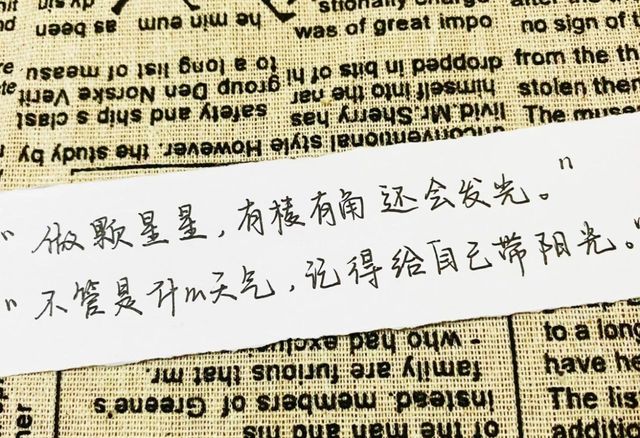 was of great impo
no sign of
from the th
stolen them
The muse
to a long list of measu
group Den Norske Verit
safety and ship s class
dropped in bits of hi
himself into the nar
livid.Mr.Sherry has
unconventional style However. the study by
"做颗星星，有棱有角还会发光。"
"不管是什m天气，记得给自己带阳光。"
- who had exclus
family are furious that mr.
instead. members of Greene's
of the man and his
to a long
have he
The list
additio